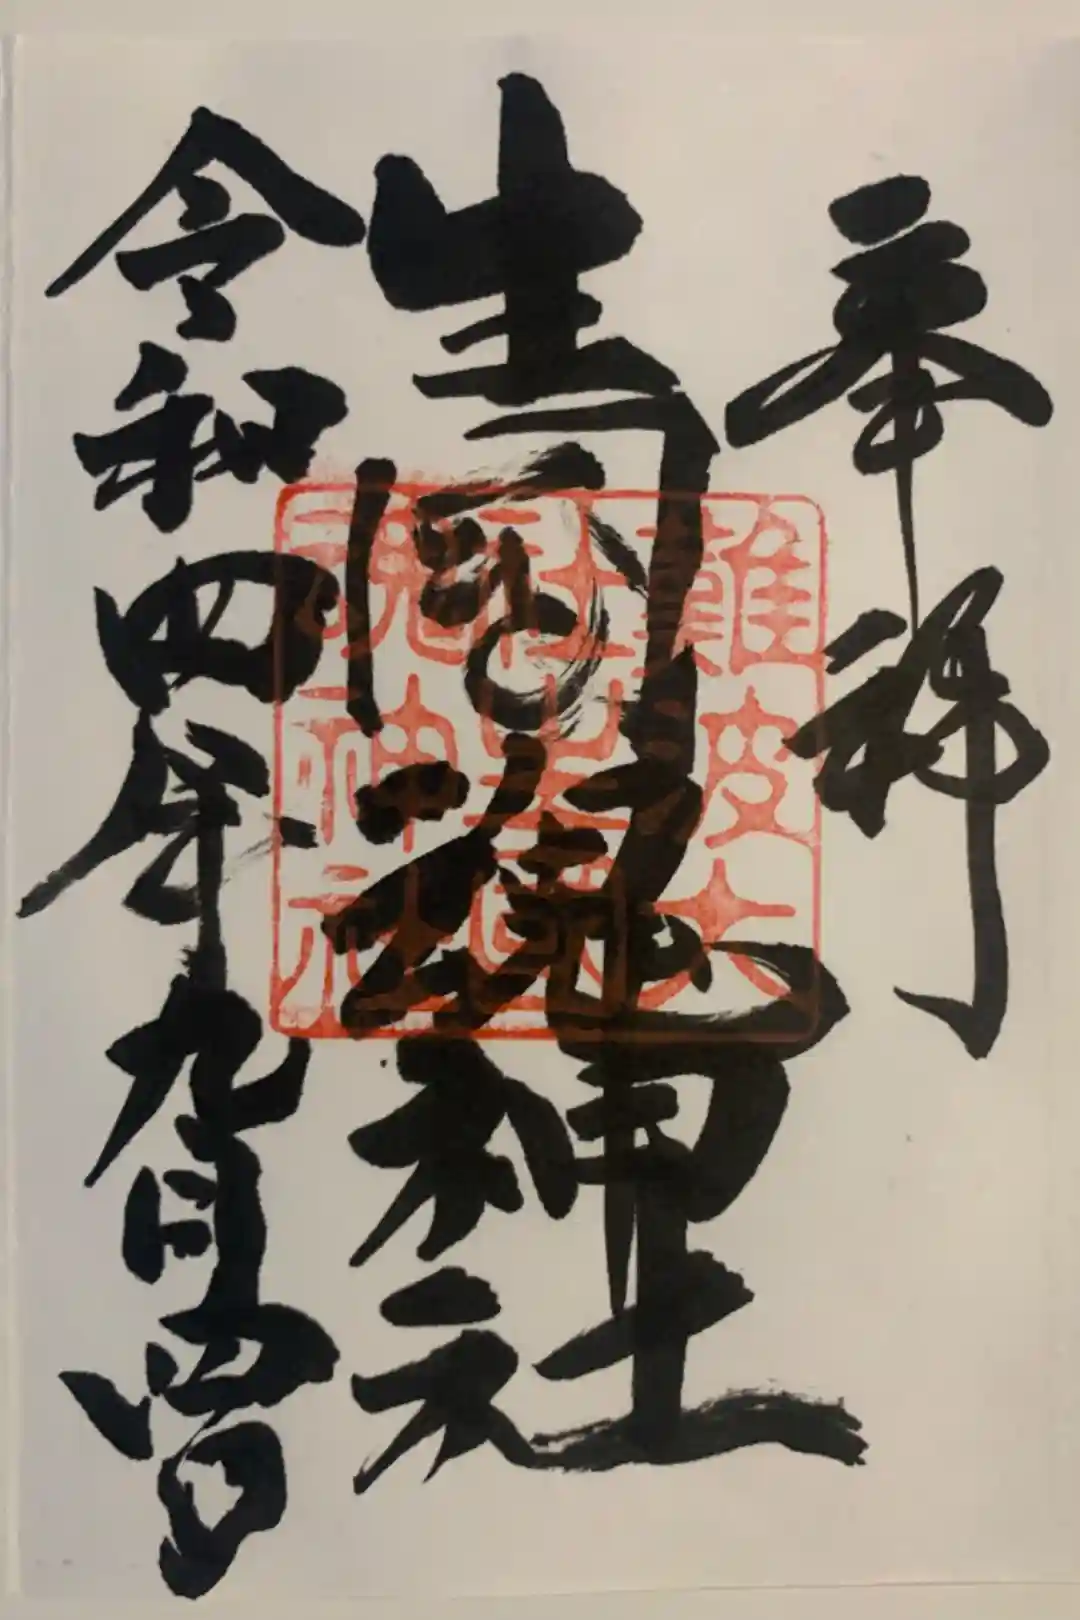 奉拝
生國魂神社
令和四年九月四日
難波大
社生國
魂神社